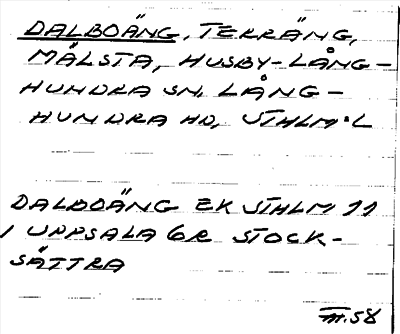 DALBOÄNG, TERRÄNG,
MÅLSTA, HUSBY-LÅNG-
HUNDRA SN, LÅNG-
HUNDRA HD, STHLM:L
DALBOÄNG EK STHLM 11
1 UPPSALA 6R STOCK-
SÄTTRA
58